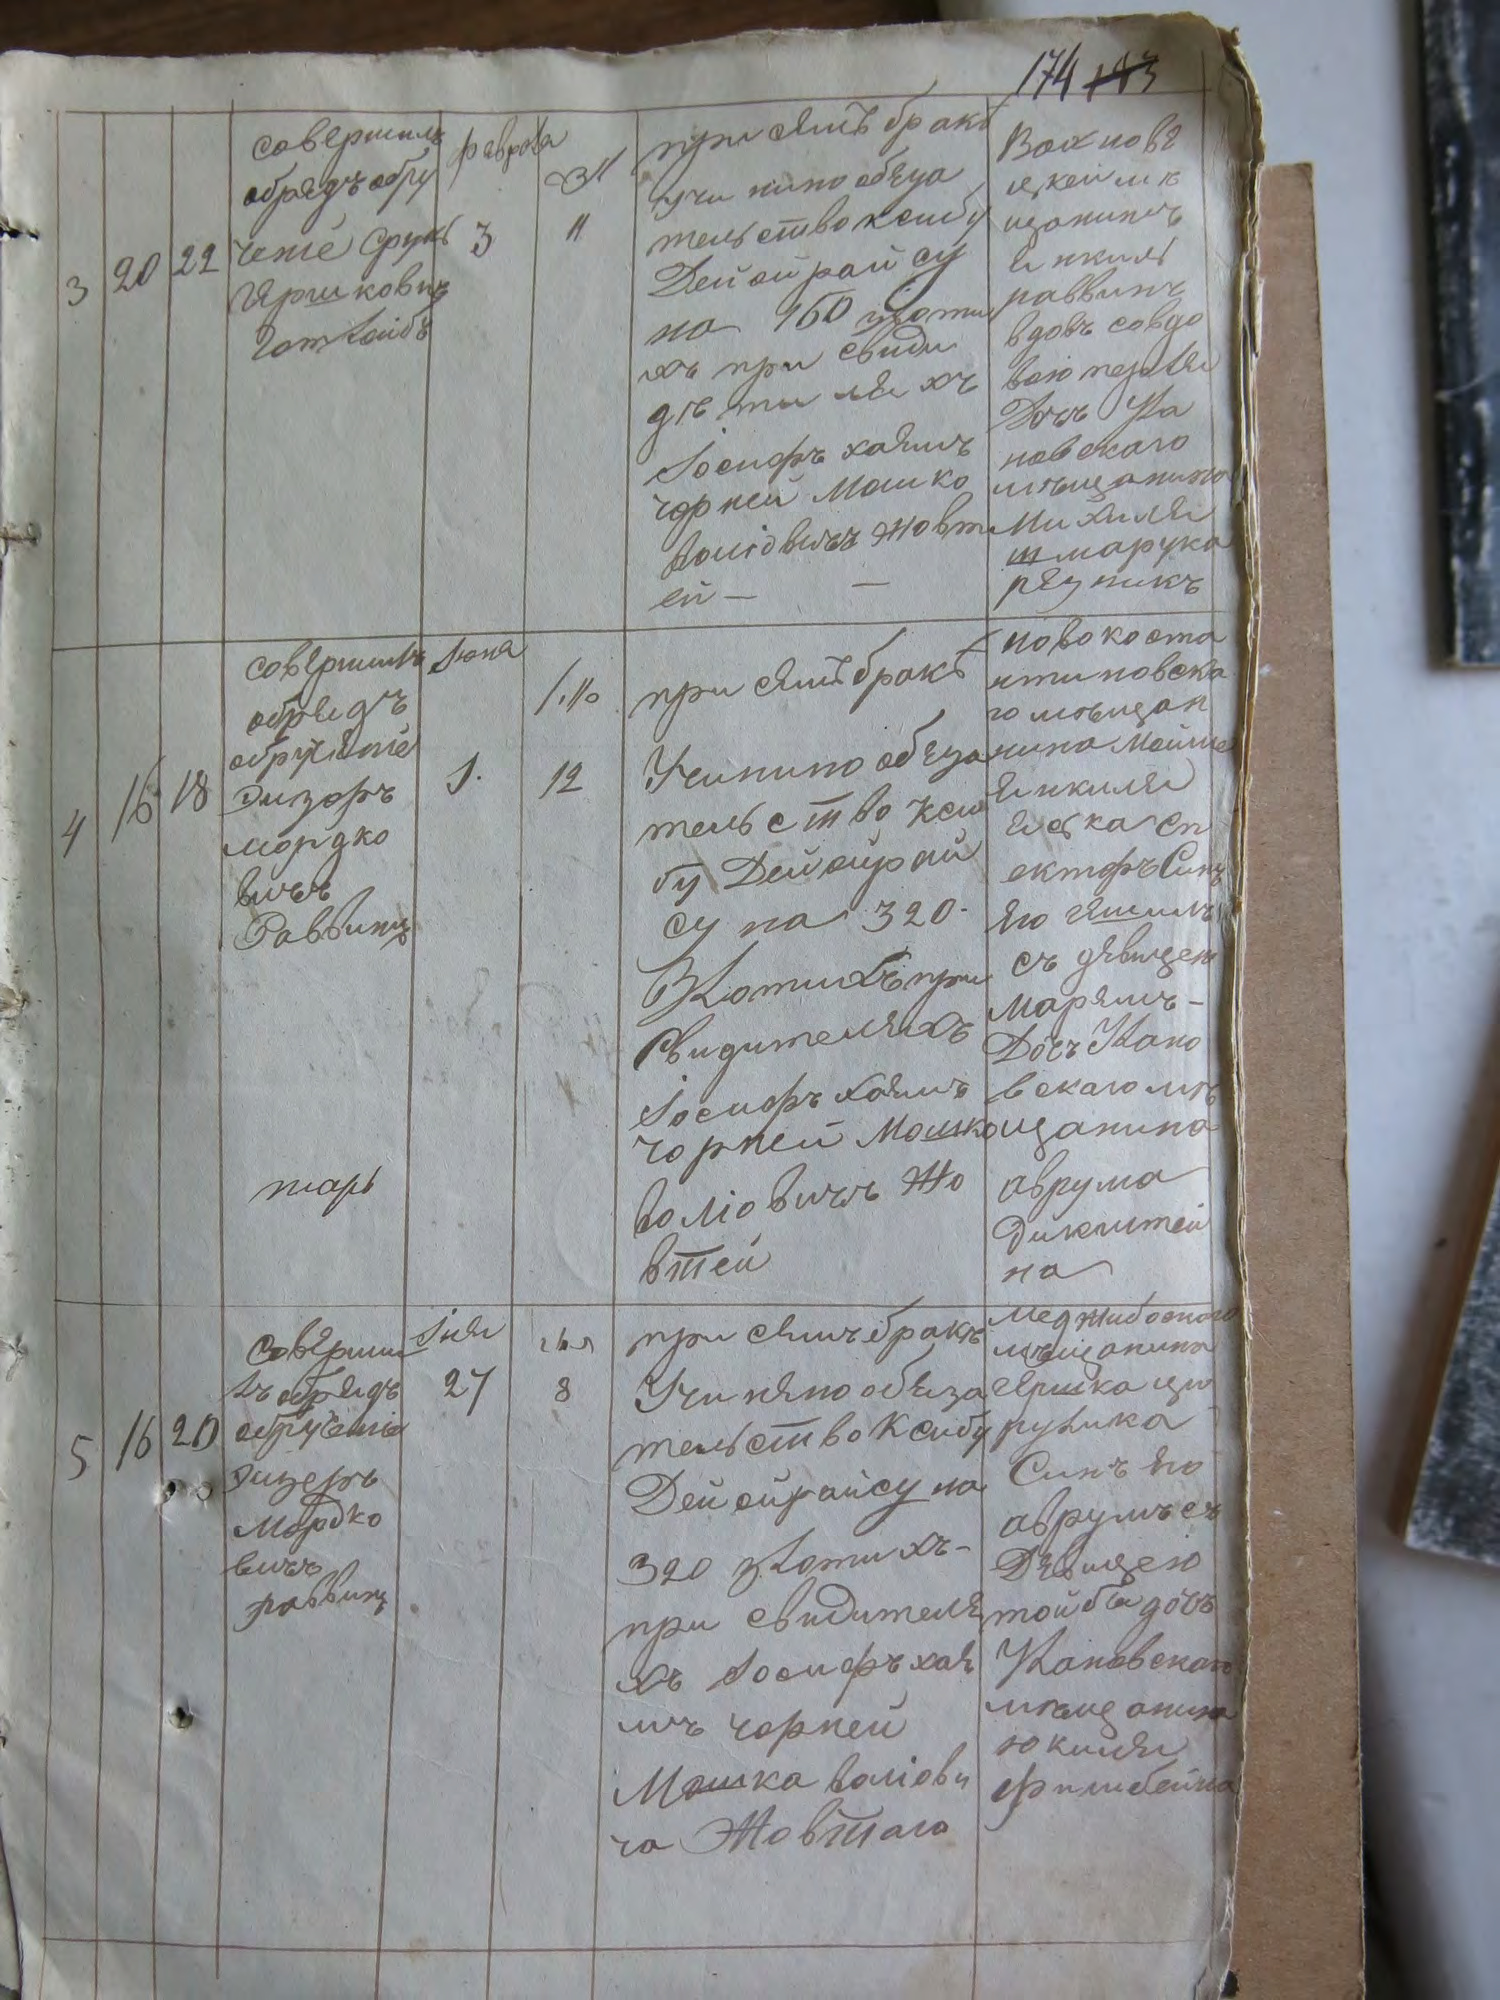 174 183
3
20
22
совершилъ
обрядъ обру
ченіе Сруль
Гершковичъ
Готлейбъ
февраля
3
11
при семъ бракѣ
учинино обеза
тельство ксибу
Дейойрайсу
на 150 злоти
хъ при свиди
дѣтилехъ
Іосифъ хаимъ
чорней Мошко
воліовичъ Жовт
ей —
Вахнове
цкей мѣ
щанинъ
Енкиль
раввинъ
вдовъ совдо
вою
Дочъ Ка
новскаго
мѣщанина
Михиля
шмарука
резникъ
4
16
18
совершилъ
обрядъ
обручение
Дизеръ
мордко
вичъ
Раввинъ
тарь
Іюня
1.
12
при семъ бракѣ
Учинино обеза
тельство кси
бу Дейойрай
су на 320
Злотихъ при
свидителяхъ
Іосифъ Хаимъ
чорней Мошко
воліовичъ Жо
втей
новокоста
нтиновска
го мѣщан
нина Мойше
Енкиля
Сынъ
его
съ девицею
Маремъ
Дочъ Кано
вскаго мѣ
щанина
аврума
Дикштей
на
5
16
20
соверши
лъ обрядъ
обручение
Дизеръ
Мордко
вичъ
раввинъ
27
8
при семъ бракѣ
Учинено обеза
тельство Ксибу
Дейойрайсу на
320 злотихъ
при свидителя
хъ Іосифъ хаи
мъ чорней
Мошка воліови
ча Жовтаго
Меджибоского
мѣщанина
Гершка
Синъ его
аврумъ съ
Девицею
тойба дочъ
Кановскаго
мѣщанина
юкиля